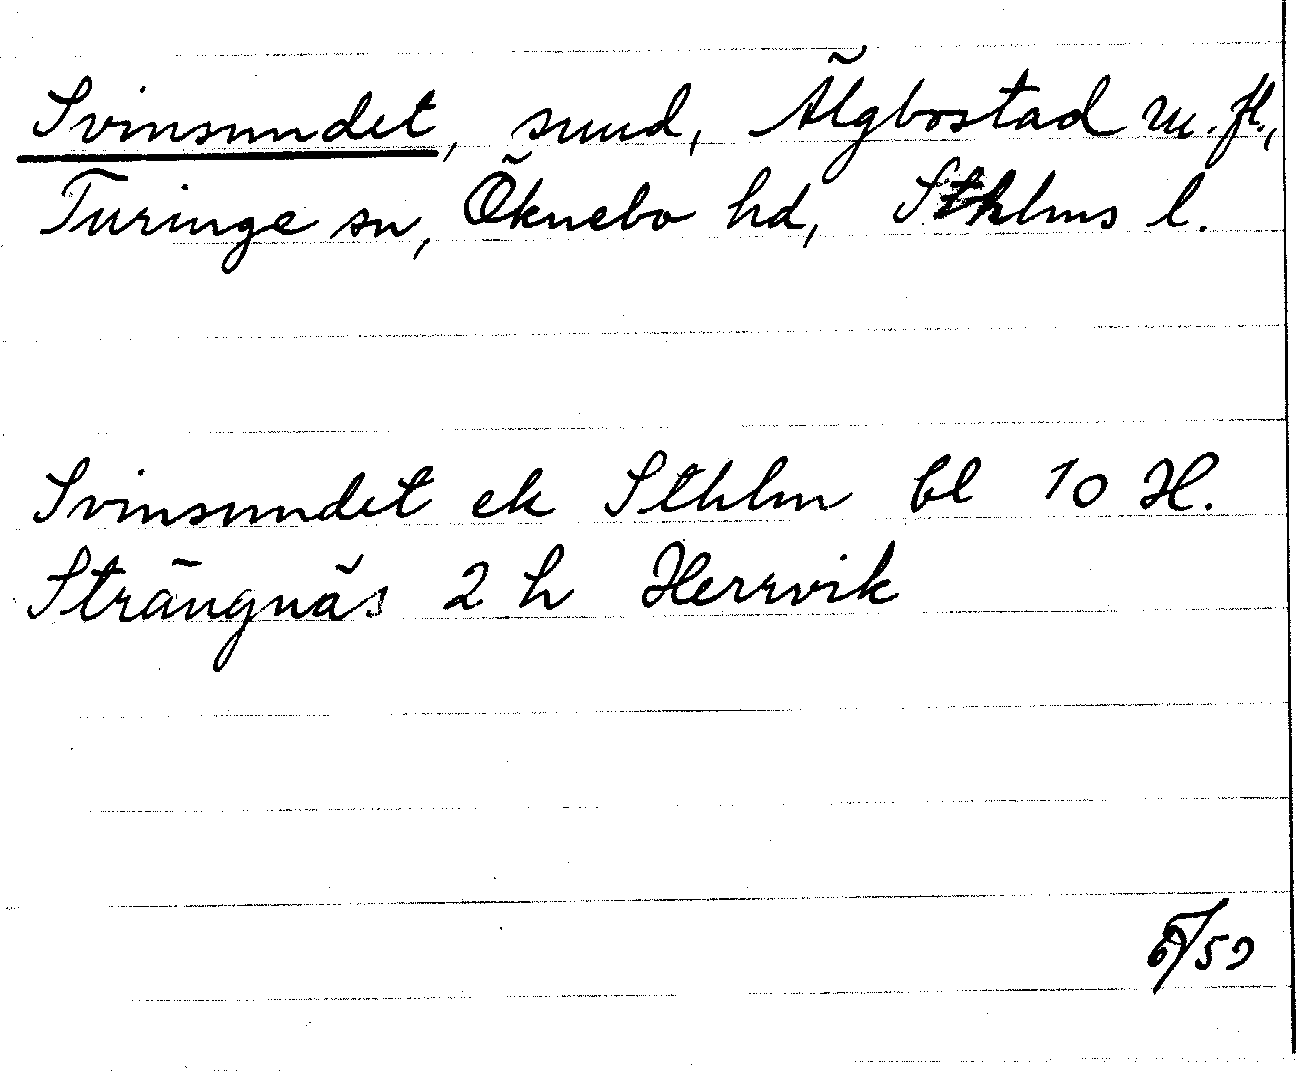 Svinsundet, sund, Älgbostad m. fl.,
Turinge sn, Öknebo hd, Sthlms l.
Svinsundet ek Sthlm bl 10 H.
Strängnäs 2 h Herrvik